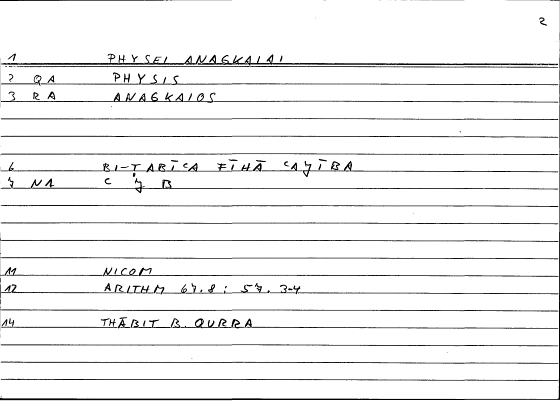 2
1 PHYSEI ANAGKAIAI
2 QA PHYSIS
3 RA ANAGKAIOS
6 BI-ṬABĪCA FĪHĀ CAǦĪBA
7 NA C Ǧ B
11 NICOM
12 ARITHM 67.8 : 57. 3-4
14 THĀBIT B. QURRA